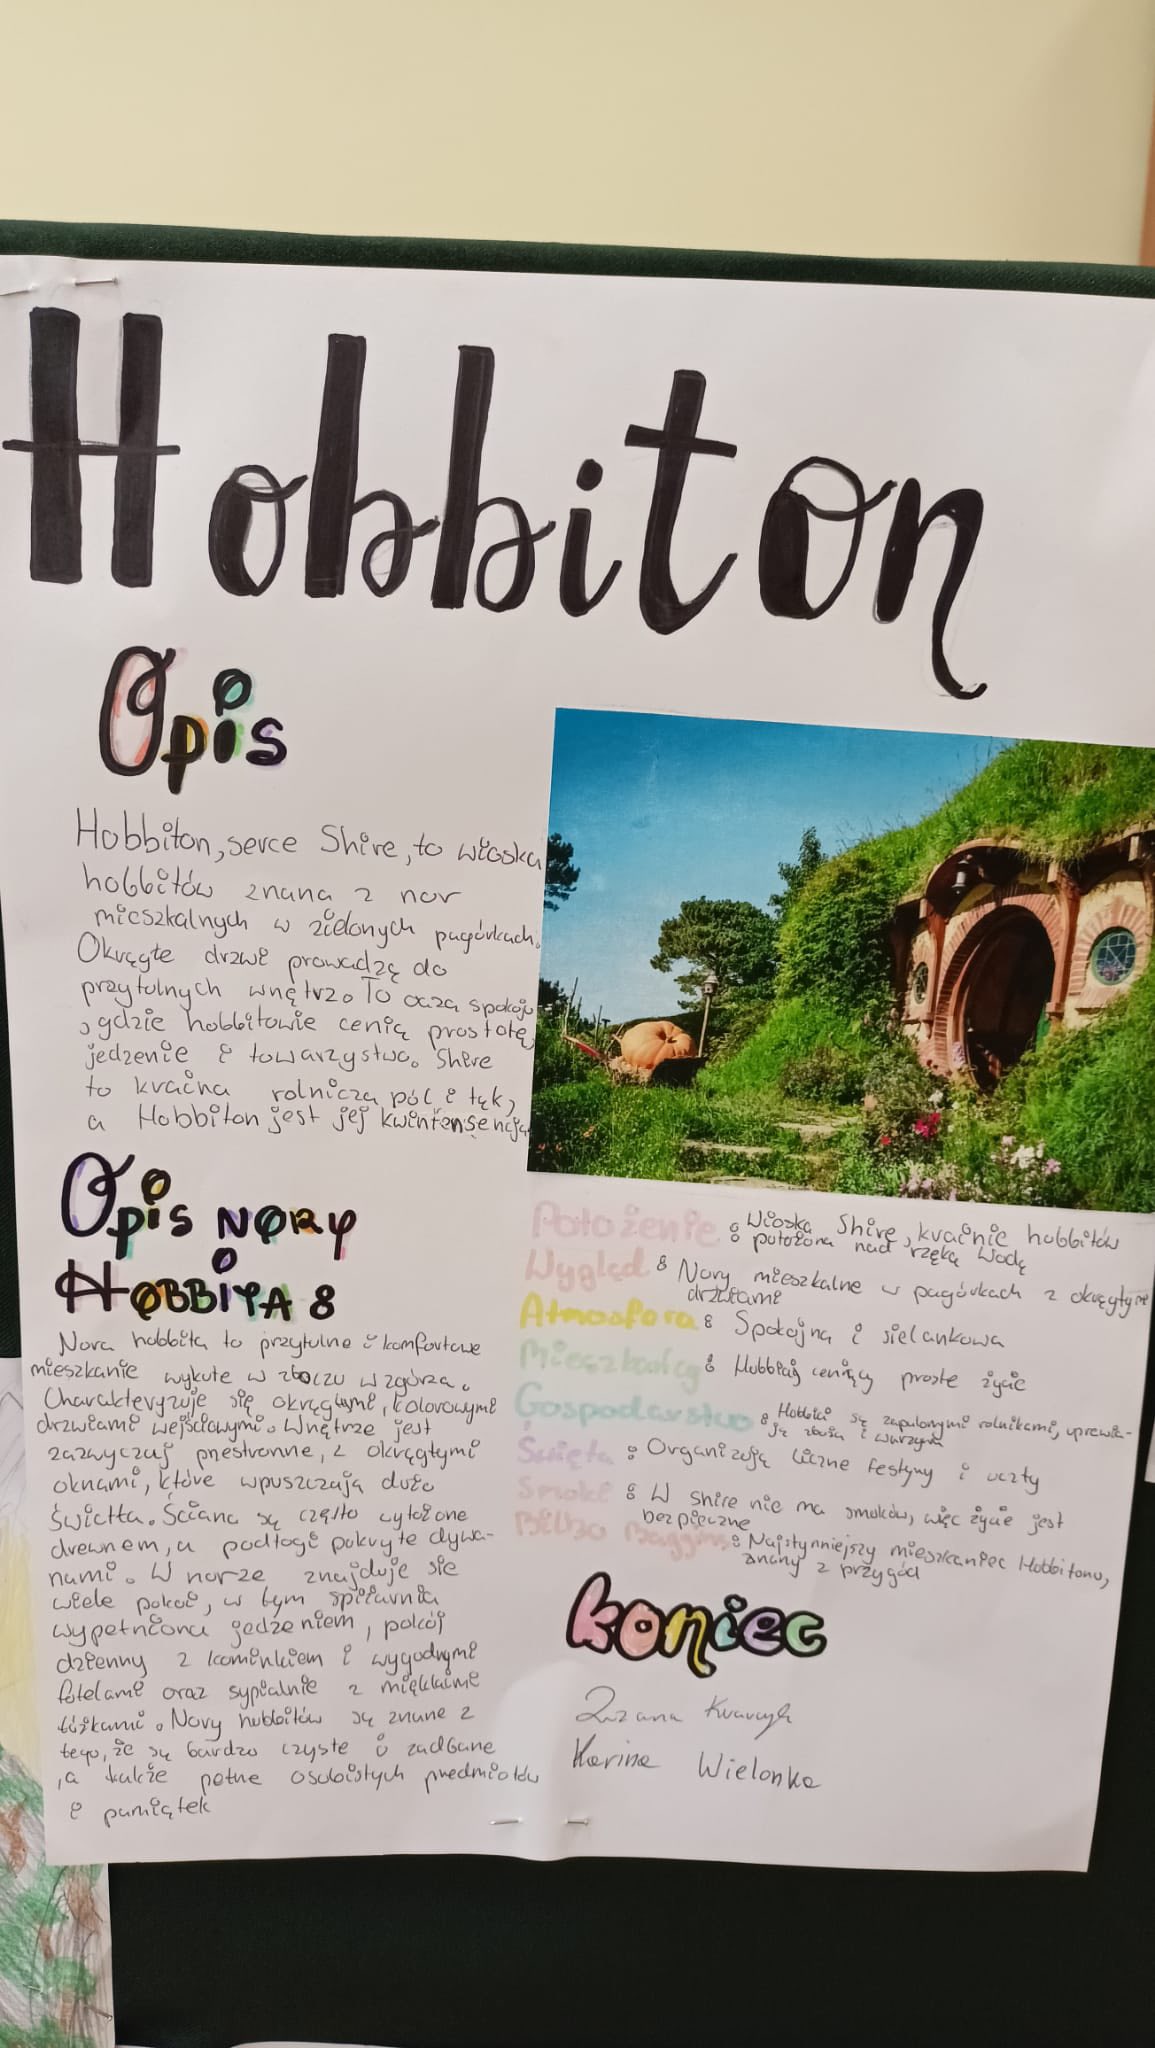 Hobbiton
Opis
Hobbiton, serce Shire, to wioska
hobbitów znana z nor
mieszkalnych w zielonych pagórkach.
Okrągłe drzwi prowadzą do
przytulnych wnętrz. To oaza spokoju
, gdzie hobbitowie cenią prostotę,
jedzenie i towarzystwo. Shire
to kraina rolnicza pól i łąk,
a Hobbiton jest jej kwintensencją
Opis NORY
HOBBITA :
Nora hobbita to przytulne i komfortowe
mieszkanie wykute w zboczu wzgórza.
Charakteryzuje się okrągłymi, kolorowymi
drzwiami wejściowymi. Wnętrze jest
zazwyczaj przestronne, z okrągłymi
oknami, które wpuszczają dużo
światła. Ściana są często wyłożone
drewnem, a podłogi pokryte dywa-
nami. W norze znajduje się
wiele pokoi, w tym spiżarnia
wypełniona jedzeniem, pokój
dzienny z kominkiem i wygodnymi
fotelami oraz sypialnie z miękkimi
łóżkami. Nory hobbitów są znane z
tego, że są bardzo czyste i zadbane
, a także pełne osobistych przedmiotów
i pamiątek
Położenie : Wioska Shire, krainie hobbitów
położona nad rzeką Wodą
Wygląd : Nory mieszkalne w pagórkach z okrągłymi
drzwiami
Atmosfera : Spokojna i sielankowa
Mieszkańcy : Hobbici ceniący proste życie
Gospodarstwo : Hobbici są zapalonymi rolnikami, uprawia-
ją zboża i warzywa
Święta : Organizują liczne festyny i uczty
Smoki : W shire nie ma smoków, więc życie jest
bezpieczne
Bilbo Baggins : Najsłynniejszy mieszkaniec Hobbitonu,
znany z przygód
koniec
Zuzana
Karina Wielonka